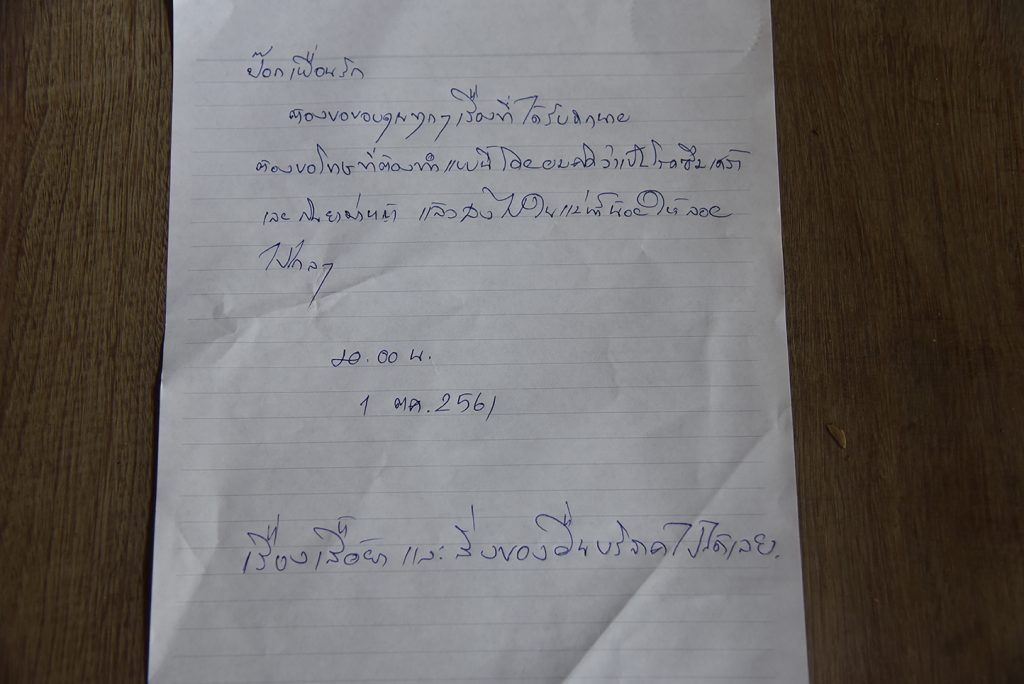 ป๊อก เพื่อนรัก
ต้องขอขอบคุณทุกๆ เรื่องที่ ได้รับจากนาย
ต้องขอโทษที่ต้องทำ แบบนี้ โดย ว่าเป็นโรคซึมเศร้า
และ กินยาฆ่าหญ้า แล้วลงไปในแม่น้ำน้อยให้ลอย
ไปไกลๆ
๒๐.๐๐ น.
1 ตค. 2561
เรื่องเสื้อผ้า และ สิ่งของอื่นบริจาคไปได้เลย.